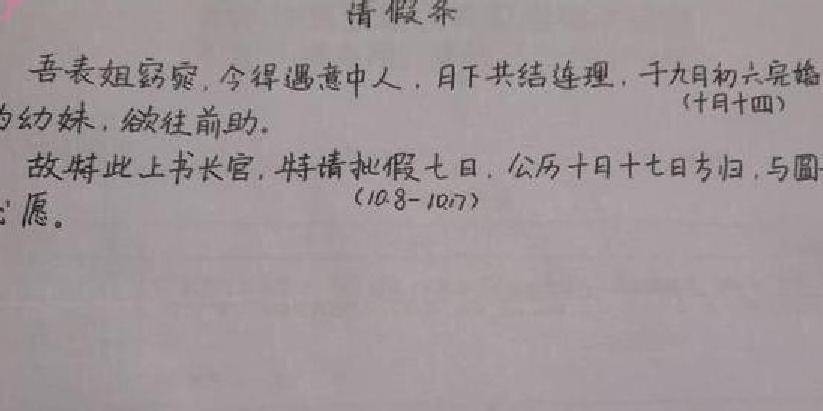 请假条
吾表姐窈窕，今得遇意中人，月下共结连理，于九月初六完婚
（十月十四）
为幼妹，欲往前助。
故特此上书长官，特请批假七日，公历十月十七日方归，与圆
（10.8-10.17）
心愿。